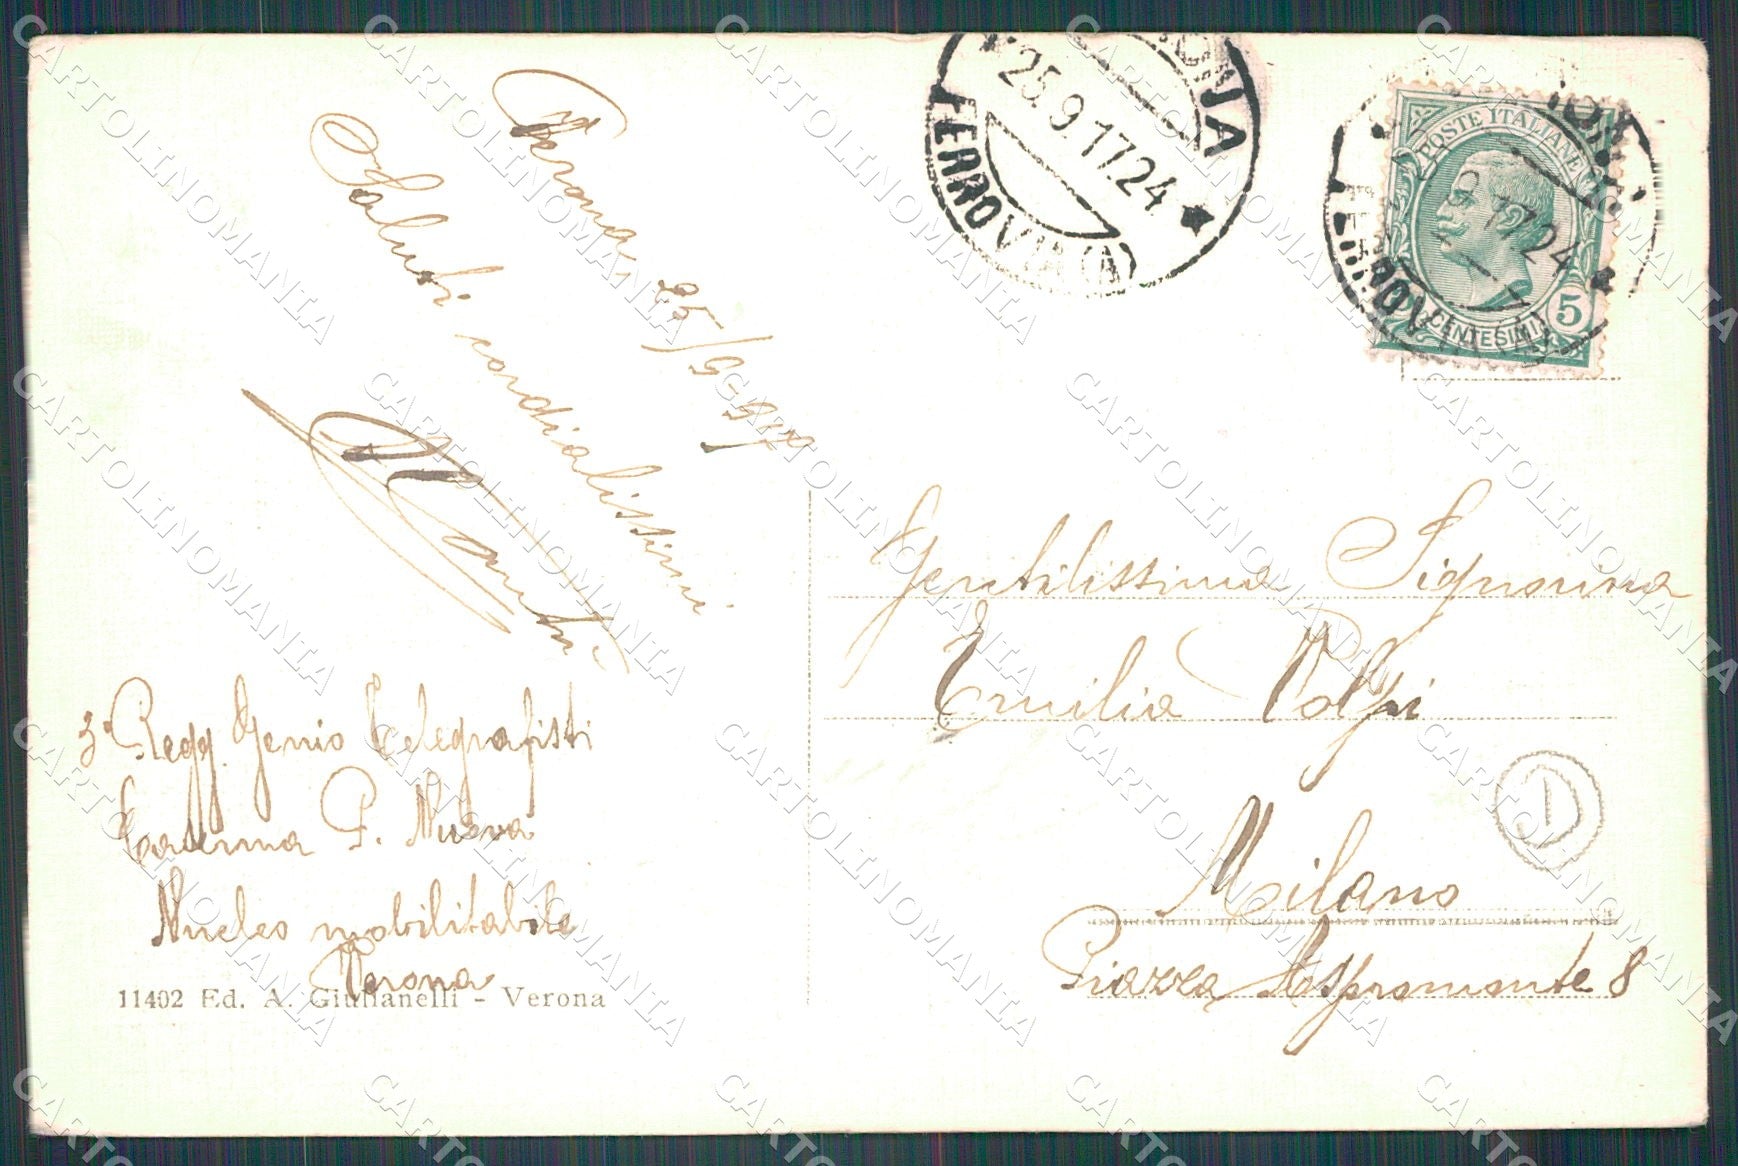 Verona, 25/9-917
Saluti cordialissimi
3° Regg. Genio Telegrafisti
Caserma P. Nuova
Nucleo mobilitabile
Verona
11402 Ed. A. Giulianelli - Verona
ONA
25.9.17.24
FERROVIA
POSTE ITALIANE
5
CENTESIMI
17.24
FERROV
Gentilissima Signorina
Emilia Volpi
D
Milano
Piazza Aspromonte 8
CARTOLINOMANIA